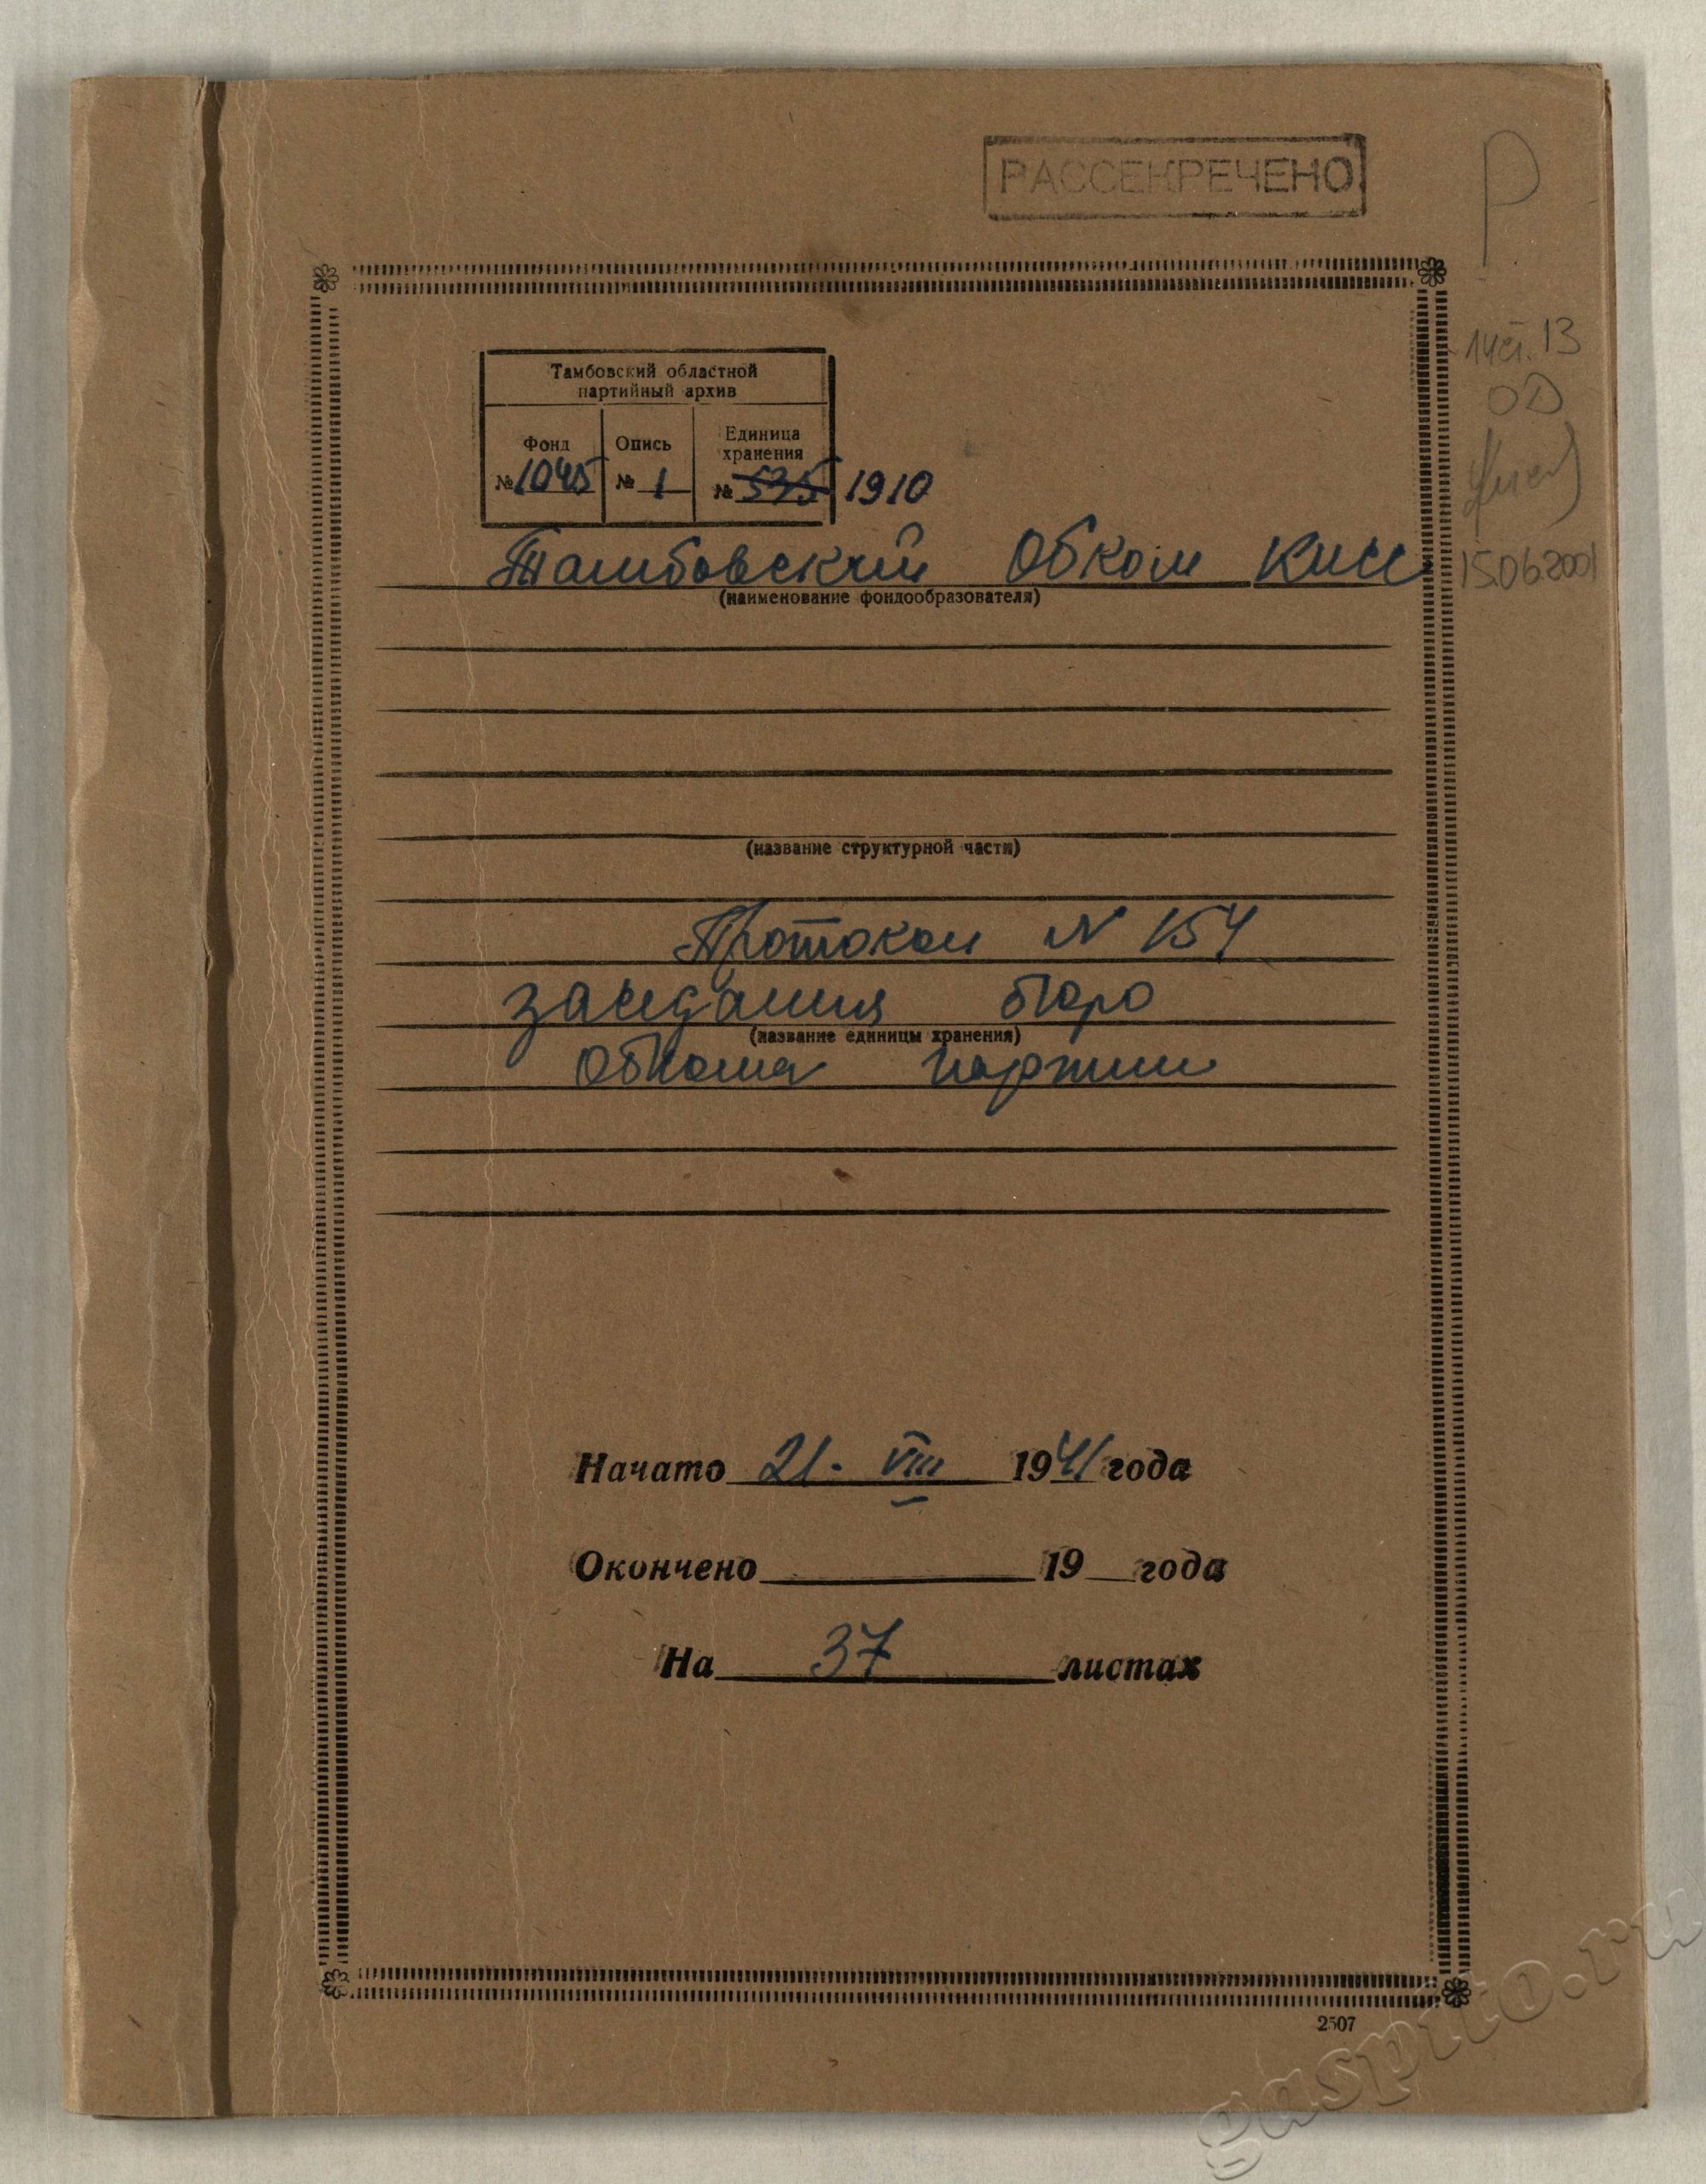 РАССЕКРЕЧЕНО
Р
13
ОД
15.06.2001
Тамбовский областной
партийный архив
Фонд
№ 1045
Опись
№ 1
Единица
хранения
№ 535 1910
Тамбовский Обком КПСС
(наименование фондообразователя)
(название структурной части)
Протокол N 154
заседания бюро
(название единицы хранения)
Обкома партии
Начато 21. VIII 1941 года
Окончено 19 года
На 37 листах
2507
gaspito.ru